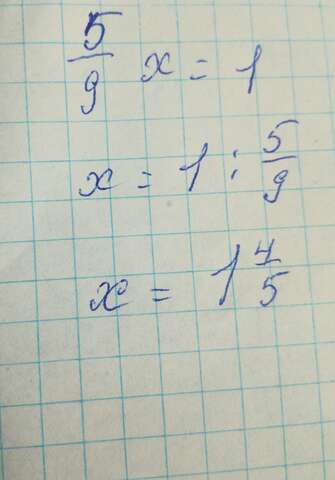 5/9 x = 1
x = 1 : 5/9
x = 1 4/5